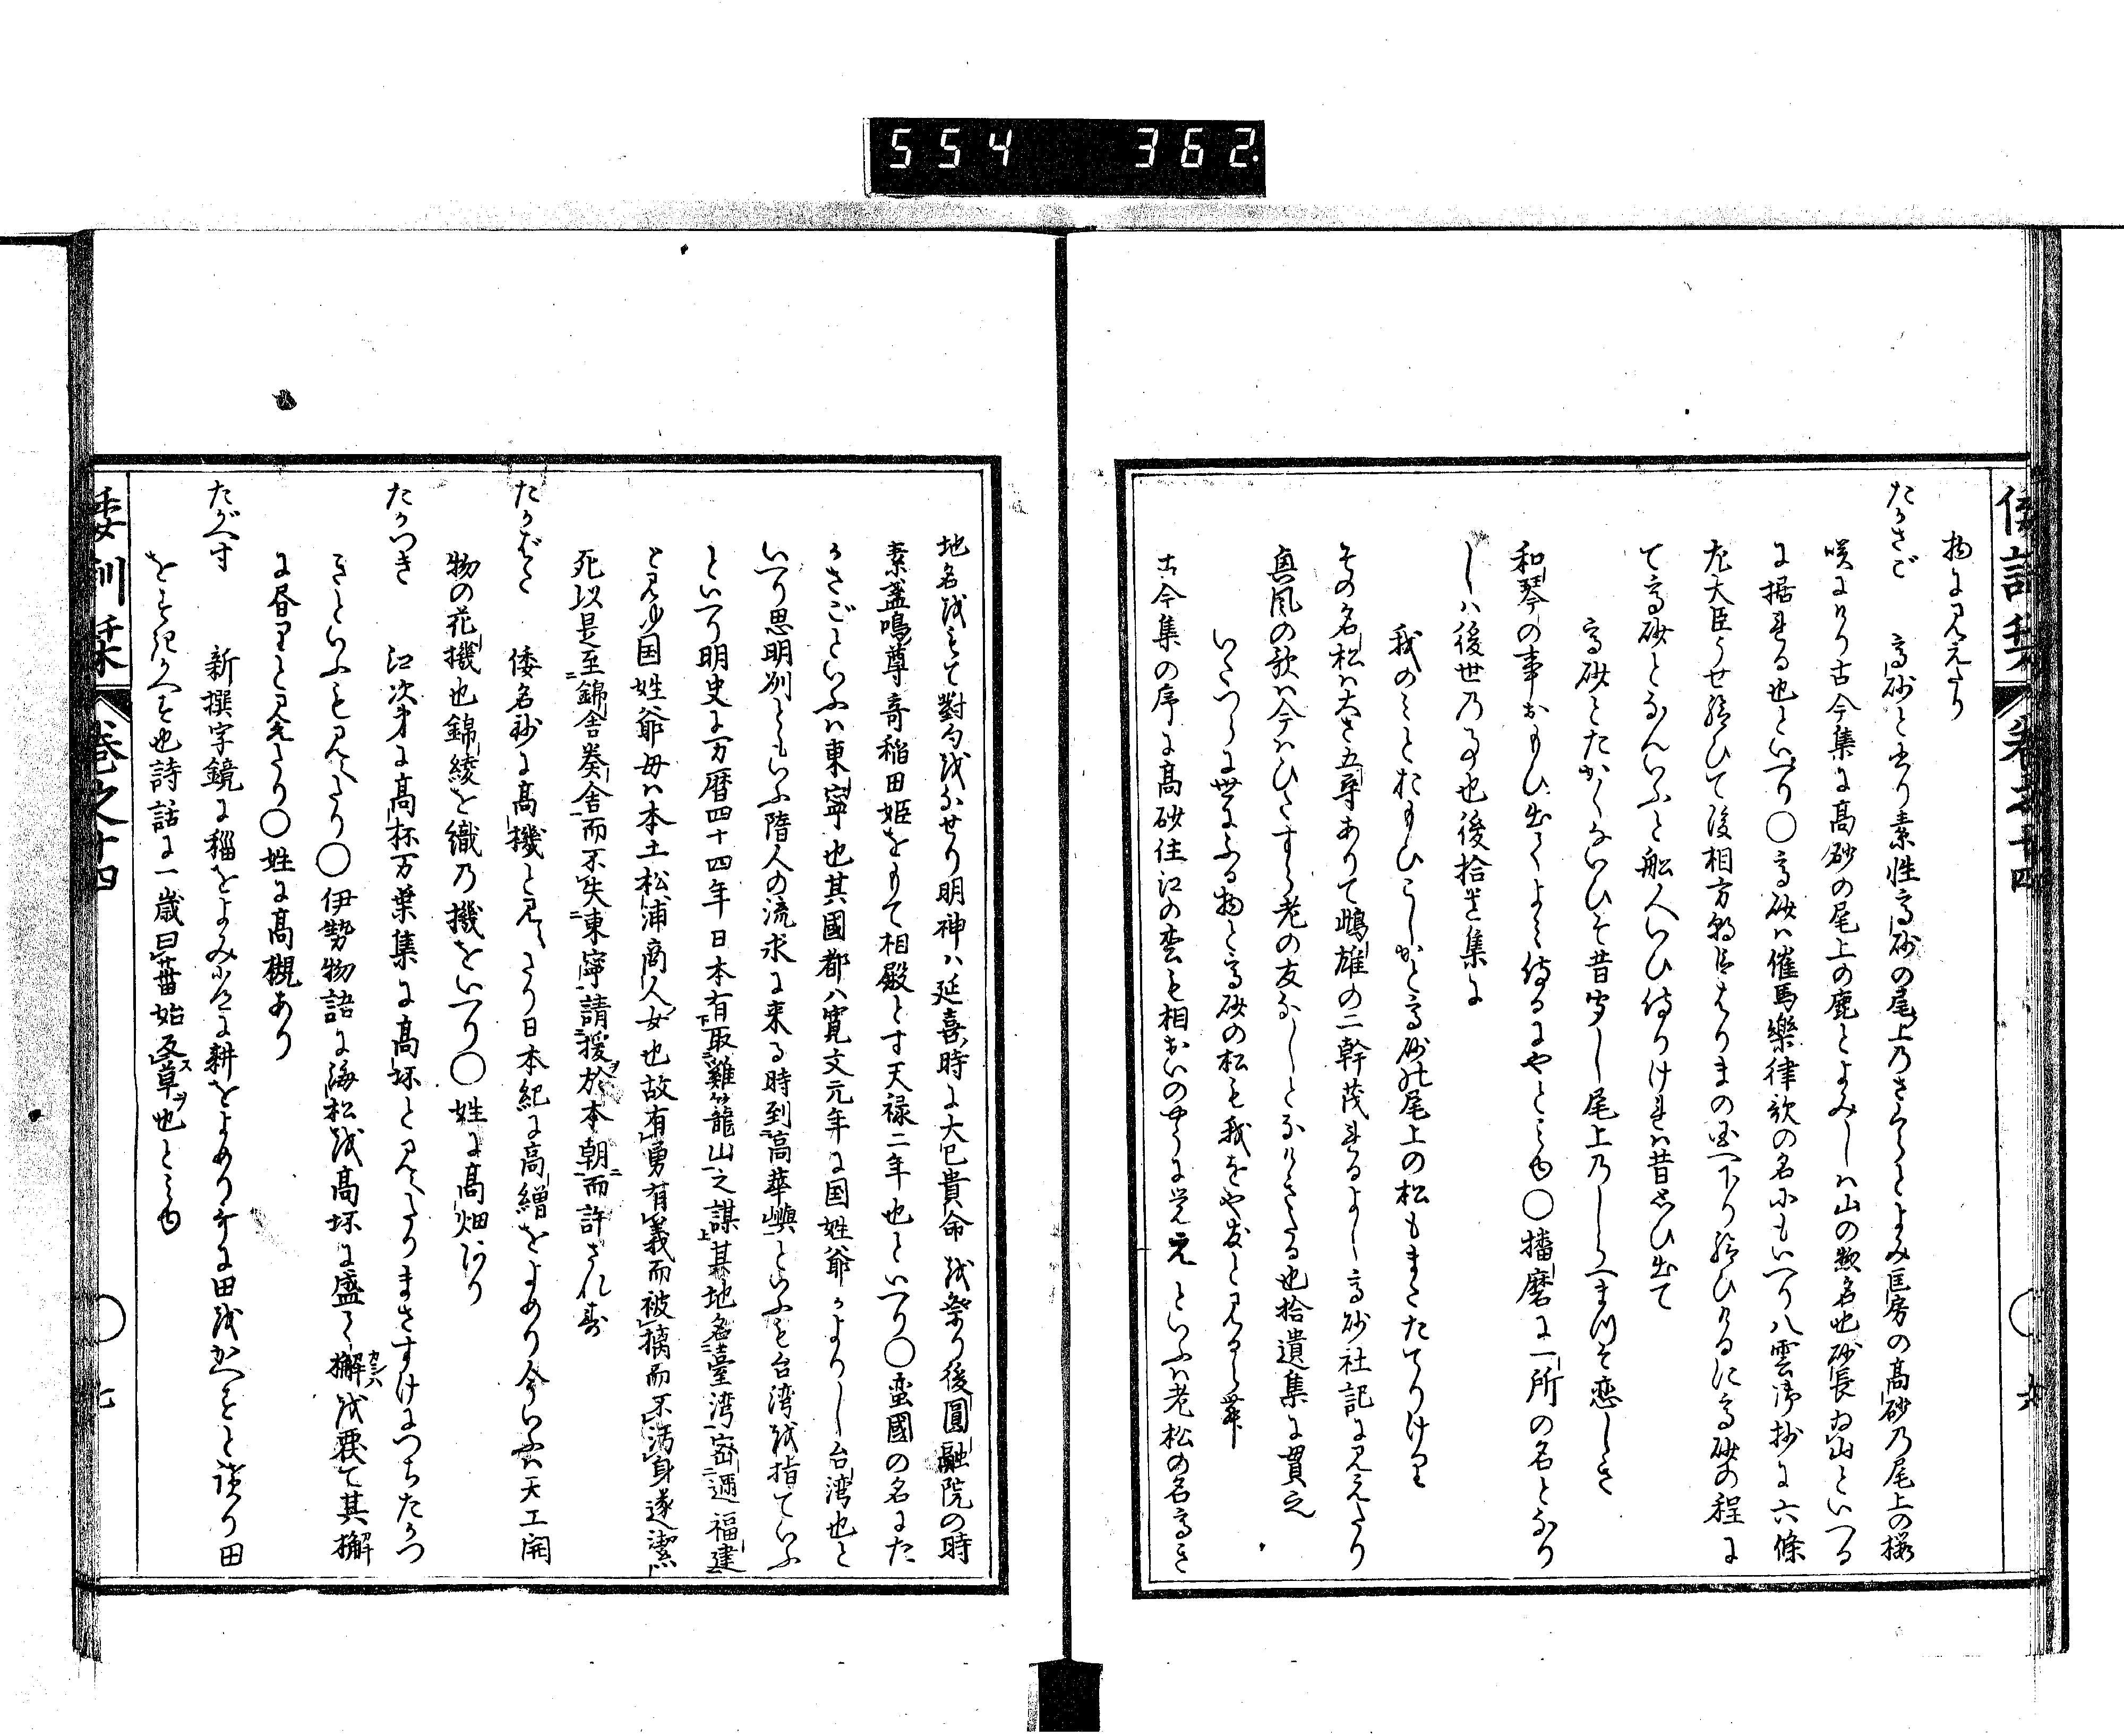 554 362
倭訓栞 巻之十四 ○ 六
物に見えたり
たかさご 高砂と書り素性高砂の尾上のさくらとよみ匡房の高砂乃尾上の櫻
咲にけり古今集に高砂の尾上の鹿とよみしハ山の惣名也砂長為山といへる
に据れる也といへり○高砂ハ催馬樂律歌の名にもいへり八雲御抄に六條
左大臣うせ給ひて後相方朝臣はりまの国へ下り給ひけるに高砂の程に
て高砂となんいふと舩人いひ侍りけれハ昔思ひ出て
高砂とたかくないひそ昔聞し尾上乃しらへまつそ恋しき
和琴の事おもひ出てよミ侍るにやとミゆ○播磨に一所の名となり
しハ後世乃事也後拾遺集に
我のミとおもひこしかと高砂の尾上の松もまたたてりけり
その名松ハ大さ五尋ありて鴫雄の二幹茂れるよし高砂社記に見えたり
興風の歌ハ今ハひたすら老の友なしとなけきたる也拾遺集に貫之
いたつらに世にふる物と高砂の松も我をや友と見るらむ
古今集の序に高砂住江の松も相おいのやうに覚えといふハ老松の名高き
地名をもて對句をなせり明神ハ延喜ノ時に大己貴命を祭り後圓融院の時
素盞嗚尊奇稲田姫をもて相殿とす天禄二年也といへり○蛮國の名にた
かさごといふハ東寧也其國都ハ寛文元年に国姓爺かよりし台湾也と
いへり思明州ともいふ隋人の流求に来る時到高華嶼といふも台湾を指ていふ
といへり明史に万暦四十四年日本有取雞籠山之謀其地名臺湾密邇福建
と見ゆ国姓爺母ハ本土松浦商人ノ女也故有勇有義而被擒而不汚身遂潔
死以是至錦舎奏舎而不失東寧請援於本朝而許されず
たかばた 倭名鈔に高機と見えたり日本紀に高繒をよめり今いふハ天工開
物の花機也錦綾を織乃機をいへり○姓に高畑あり
たかつき 江次第に高杯万葉集に高坏と見えたりまさすけにつちたかつ
きといふも見えたり○伊勢物語に海松を高坏に盛て檞を覆て其檞
に昼りと見えたり○姓に高槻あり
たがへす 新撰字鏡に穪をよみ常に耕をよめり字に田をかへすと謂り田
をすきかへす也詩話に一歳曰菑始反草也とミゆ
倭訓栞 巻之十四 ○ 七